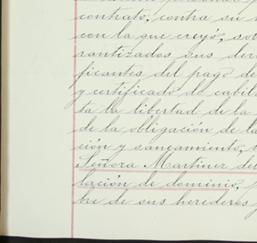 contrato, contra su
con la que creyó, sol
rantizados sus der
ficantes del pago de
y certificado de cabil
ta la libertad de la
de la obligación de la
ción y saneamiento,
Señora Martinez de
tación de dominio,
bre de sus herederos